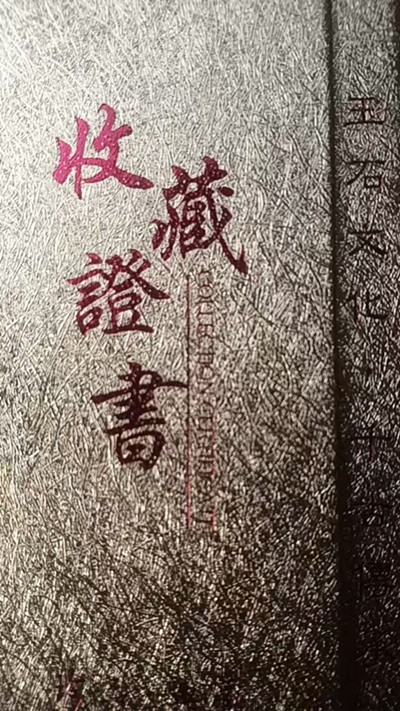 收藏證書
COLLECTION CERTIFICATE
玉石文化